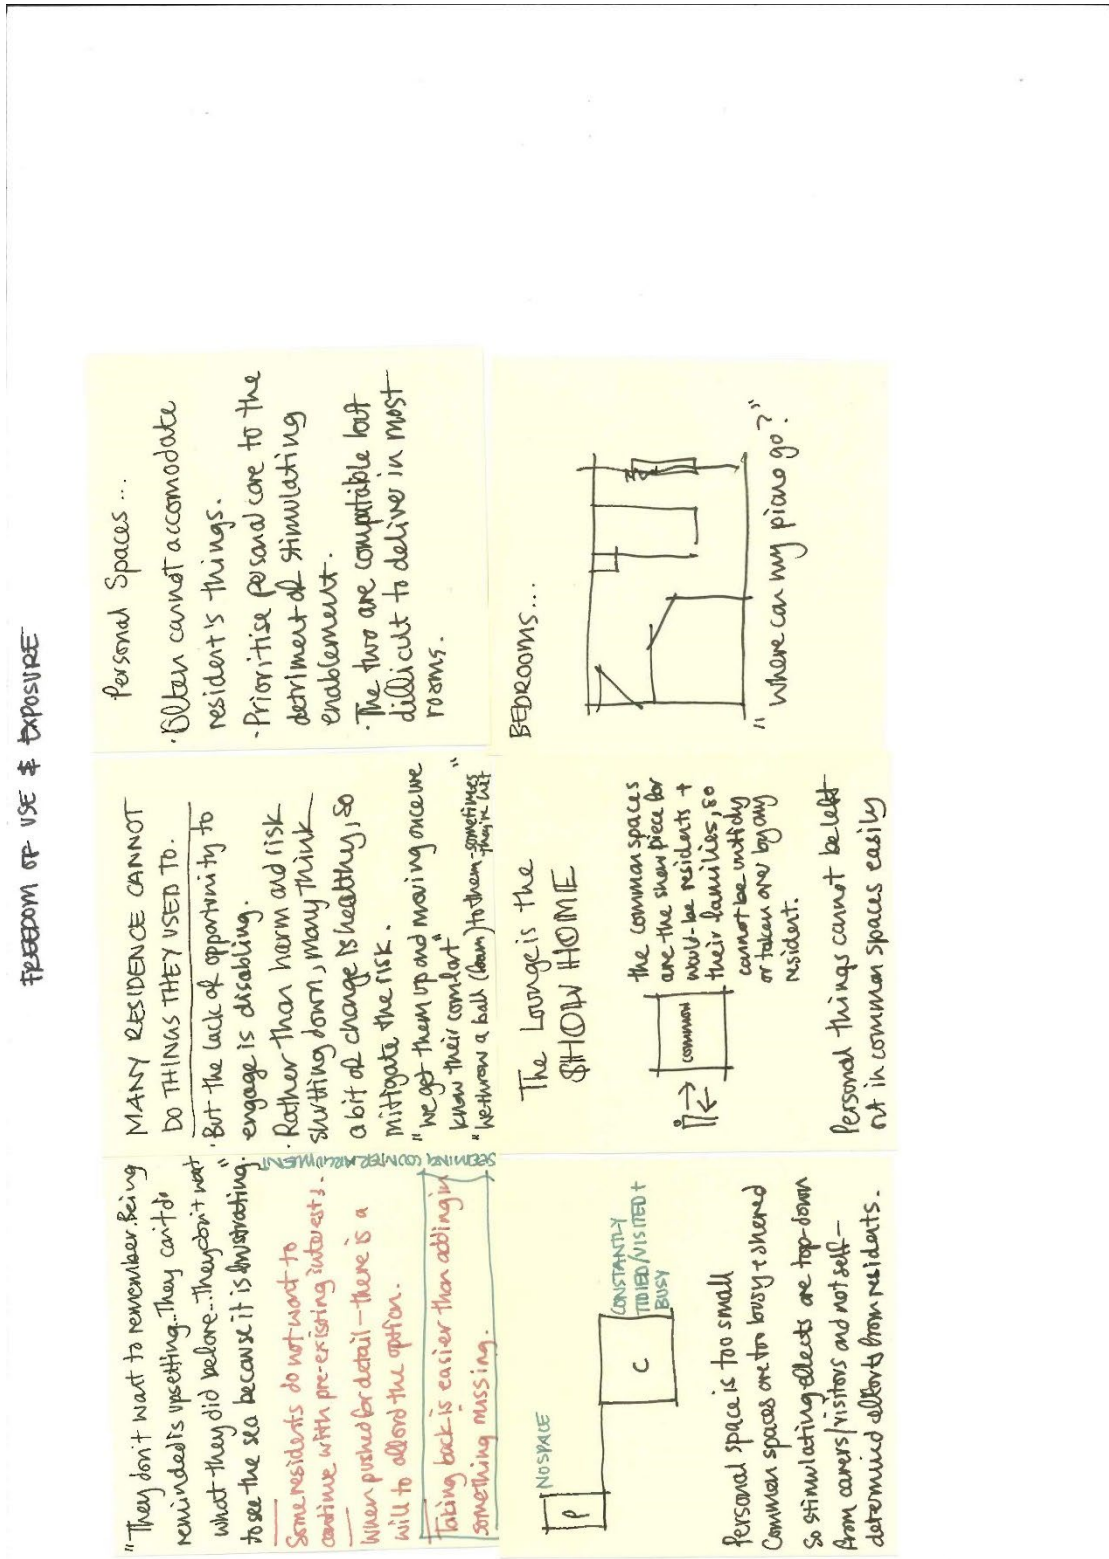 FREEDOM OF USE & EXPOSURE
"They don't want to remember. Being
reminded is upsetting... They can't do
what they did before... They don't want
to see the sea because it is frustrating."
Some residents do not want to
continue with pre-existing interests.
When pushed for detail - there is a
will to afford the option.
Taking back is easier than adding in
something missing.
SEEMING COUNTER ARGUMENT
MANY RESIDENCE CANNOT
DO THINGS THEY USED TO.
· But the lack of opportunity to
engage is disabling.
· Rather than harm and risk
shutting down, many think
a bit of change is healthy, so
mitigate the risk.
"we get them up and moving once we
know their comfort"
"we throw a ball (foam) to them - sometimes
they're hit"
Personal Spaces...
· Often cannot accomodate
resident's things.
· Prioritise personal care to the
detriment of stimulating
enablement.
· The two are compatible but
difficult to deliver in most
rooms.
P
NO SPACE
C
CONSTANTLY
TIDIED/VISITED +
BUSY
Personal space is too small
Common spaces are too busy + shared
So stimulating effects are top-down
from carers/visitors and not self-
determined efforts from residents.
The Lounge is the
SHOW HOME
common
the common spaces
are the show piece for
would-be residents +
their families, so
cannot be untidy
or taken over by any
resident.
Personal things cannot be left
out in common spaces easily
BEDROOMS...
"Where can my piano go?"